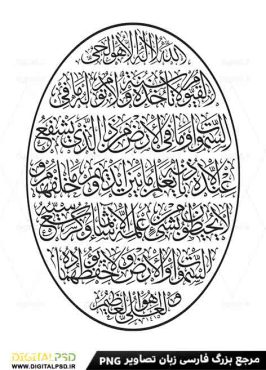 الله لا اله الا هو الحي
القيوم لا تاخذه سنة ولا نوم له ما في
السموات وما في الارض من ذا الذي يشفع
عنده الا باذنه يعلم ما بين ايديهم وما خلفهم و
لا يحيطون بشيء من علمه الا بما شاء وسع كرسيه
السموات والارض ولا يؤده حفظهما
و هو العلي العظيم
DIGITALPSD
WWW.DIGITALPSD.IR
مرجع بزرگ فارسی زبان تصاویر PNG